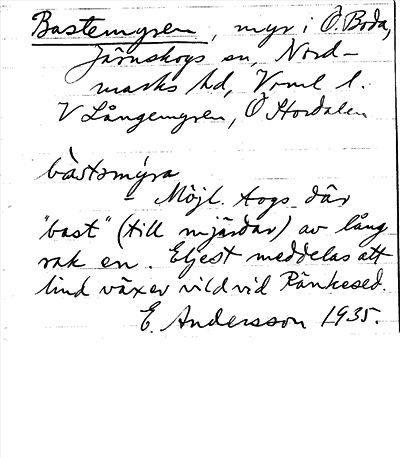 Bastemyren, myr i Ö. Boda,
Järnskogs sn, Nord-
marks hd, Vrml l.
V Långemyren, Ö Hordalen
bàstsmýra
- Möjl. togs där
"bast" (till mjärdar) av lång
rak en. Eljest meddelas att
lind växer vild vid Ränkesed.
E. Andersson 1935.